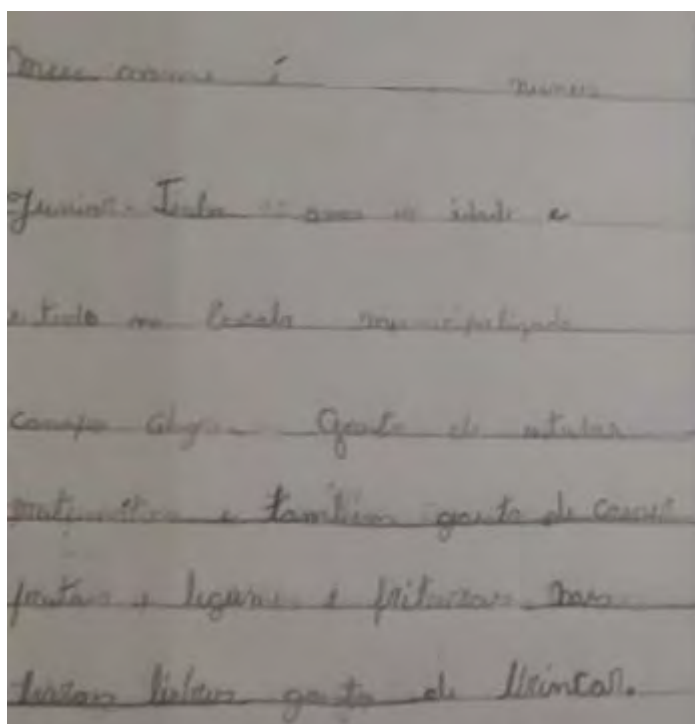 meu nome é nunes
Junior. Tenho anos de idade e
estudo na Escola municipalizada
campo alegre. Gosto de estudar
matemática e também gosto de comer
frutas e legumes e frituras nas
horas livres gosto de brincar.